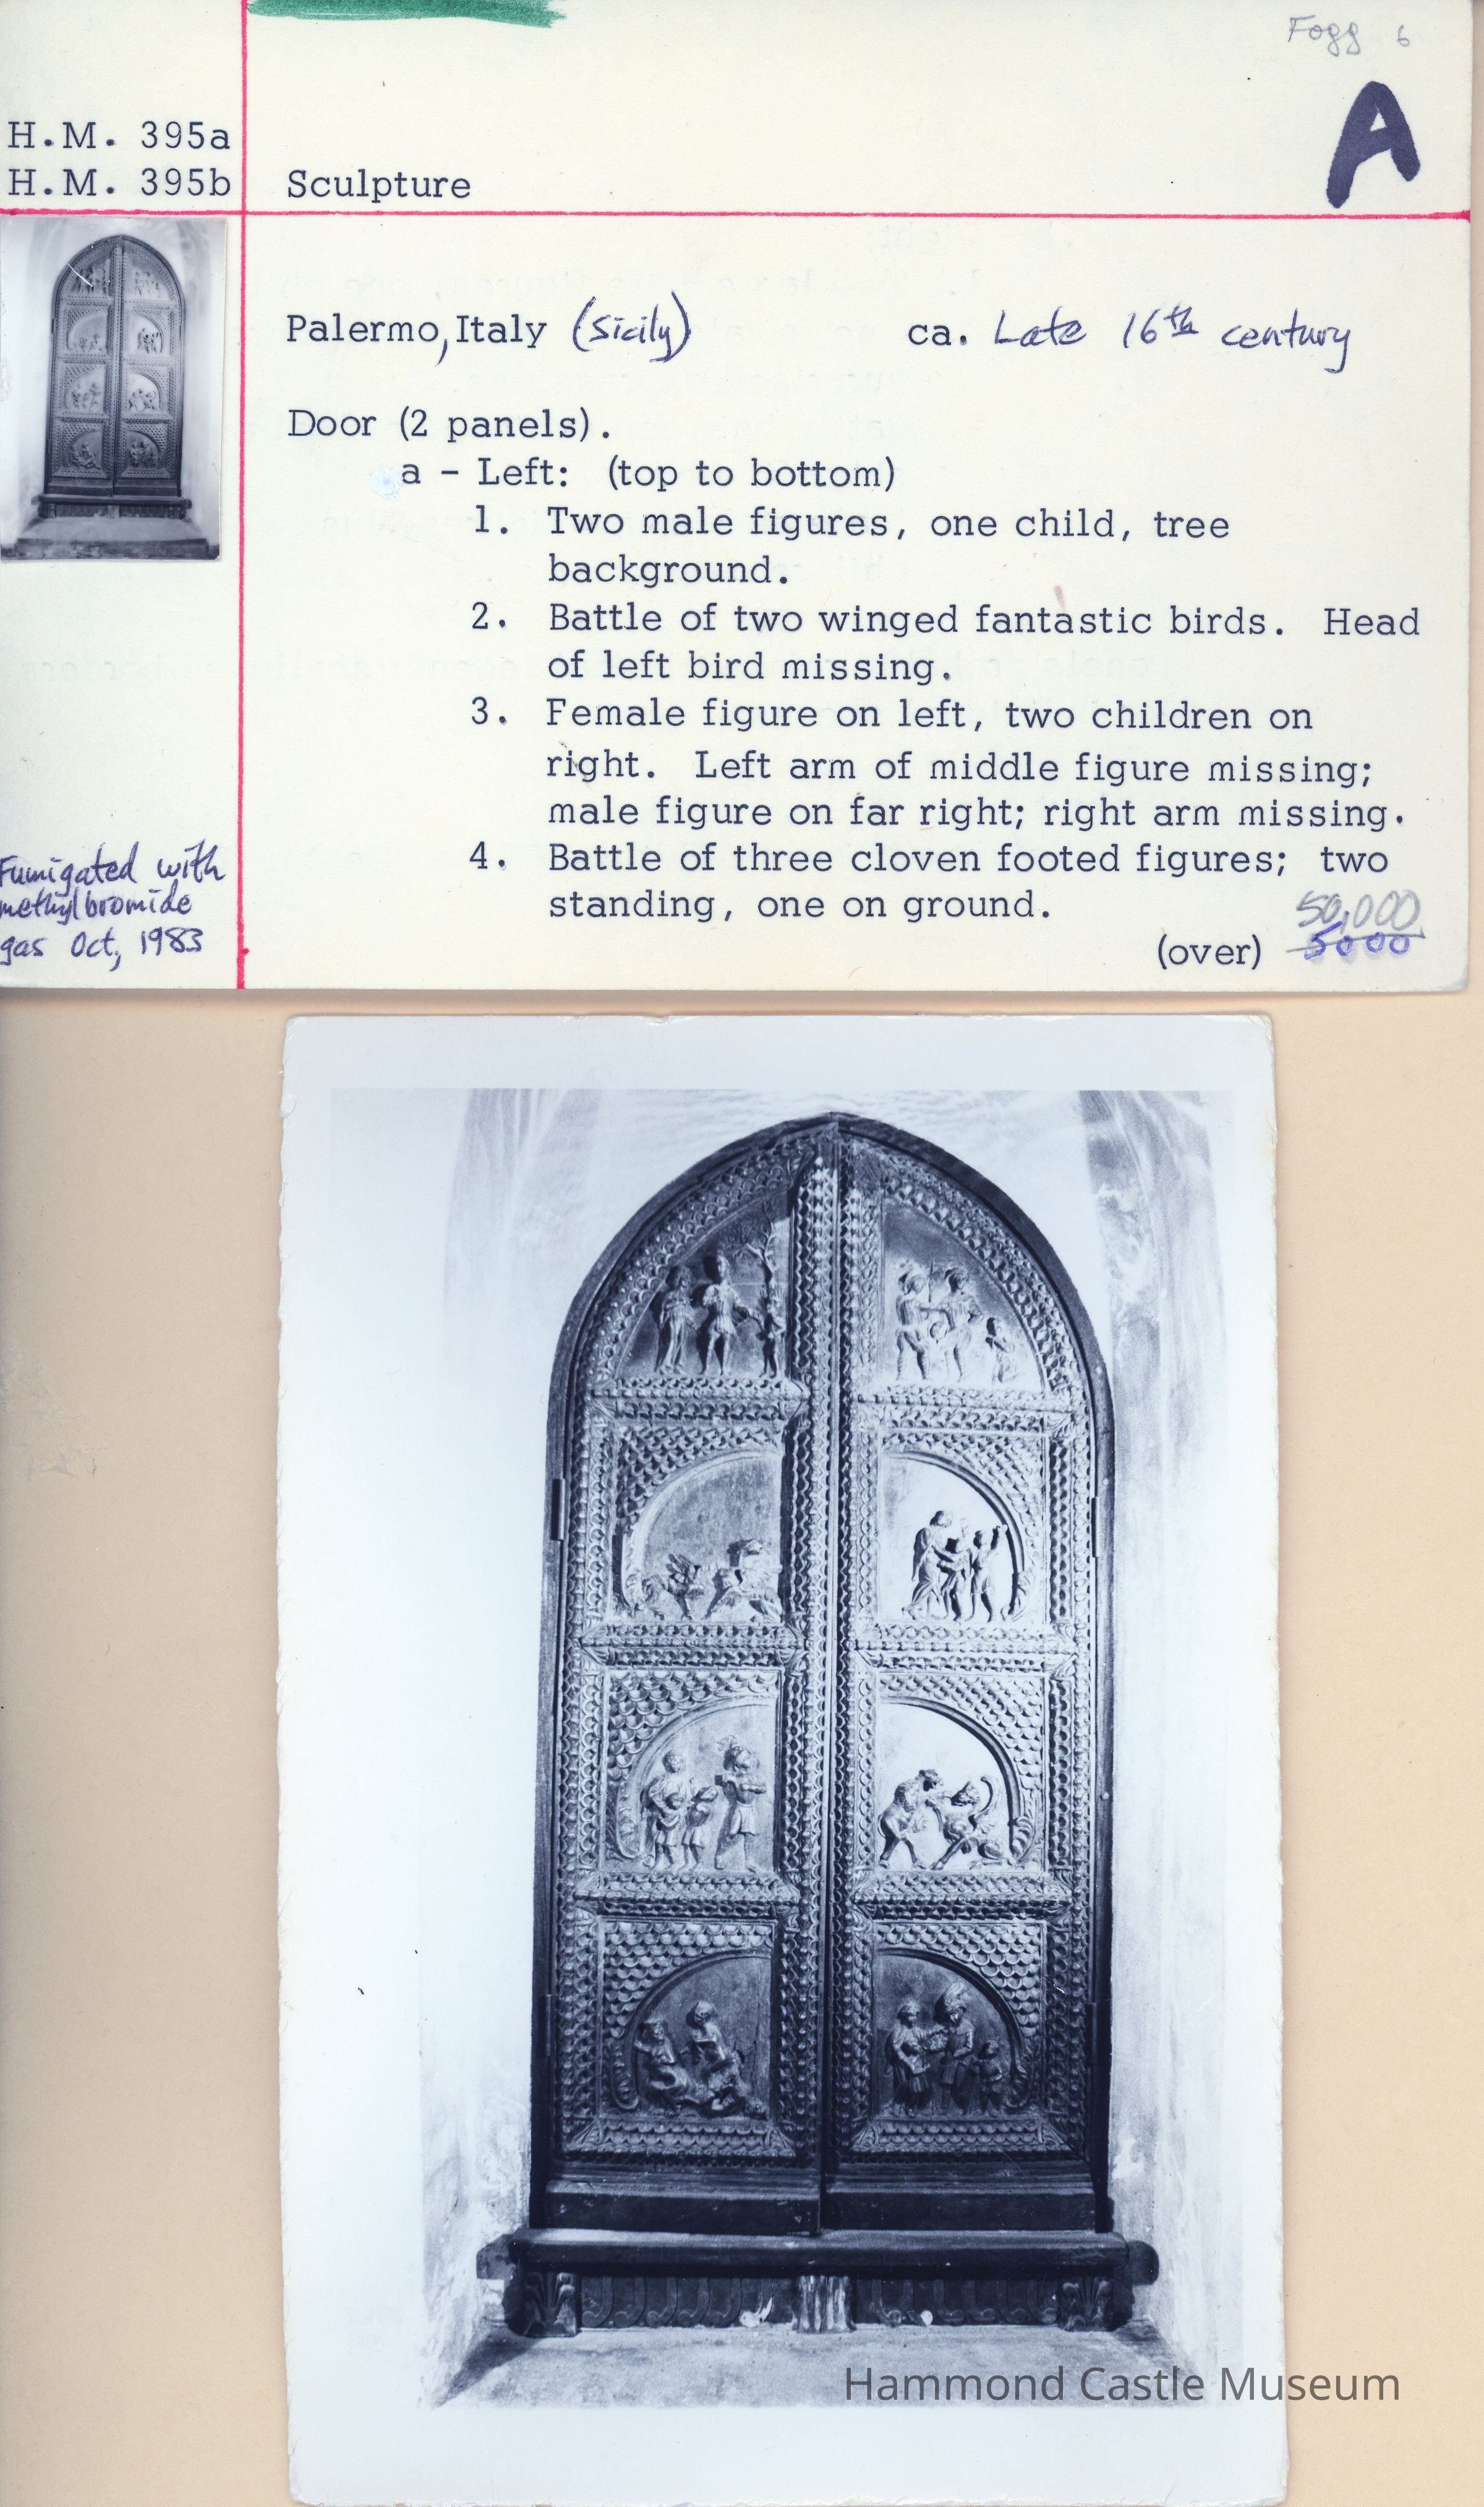 Fogg 6
A
H.M. 395a
H.M. 395b
Sculpture
Palermo, Italy (Sicily) ca. Late 16th century
Door (2 panels).
a - Left: (top to bottom)
1. Two male figures, one child, tree
background.
2. Battle of two winged fantastic birds. Head
of left bird missing.
3. Female figure on left, two children on
right. Left arm of middle figure missing;
male figure on far right; right arm missing.
4. Battle of three cloven footed figures; two
standing, one on ground.
50,000
(over) 5000
Fumigated with
methylbromide
gas Oct, 1983
Hammond Castle Museum